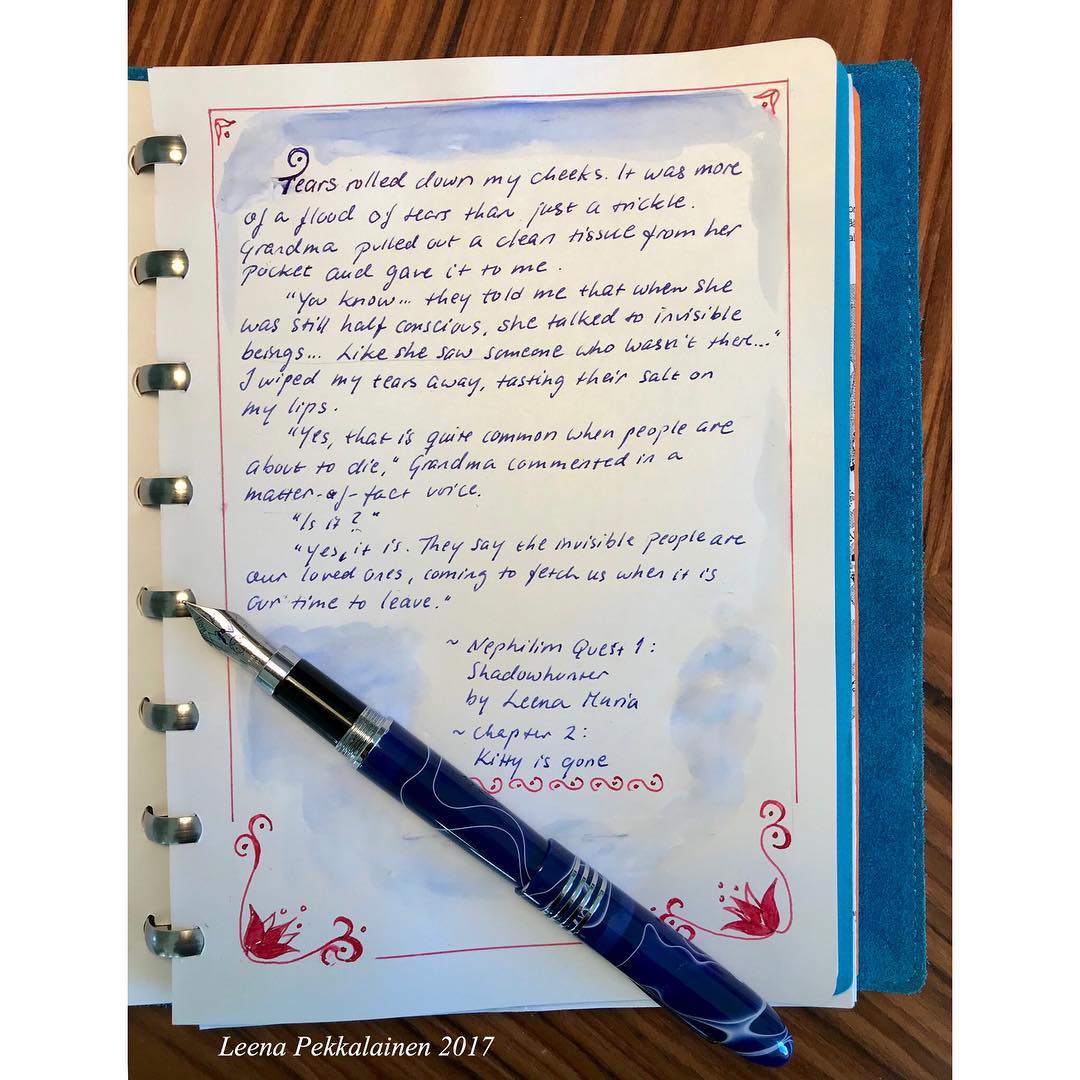 Tears rolled down my cheeks. It was more
of a flood of tears than just a trickle.
Grandma pulled out a clean tissue from her
pocket and gave it to me.
"You know... they told me that when she
was still half conscious, she talked to invisible
beings... Like she saw someone who wasn't there..."
I wiped my tears away, tasting their salt on
my lips.
"Yes, that is quite common when people are
about to die," Grandma commented in a
matter-of-fact voice.
"Is it?"
"Yes, it is. They say the invisible people are
our loved ones, coming to fetch us when it is
our time to leave."
~ Nephilim Quest 1:
Shadowhunter
by Leena Maria
~ Chapter 2:
Kitty is gone
Leena Pekkalainen 2017